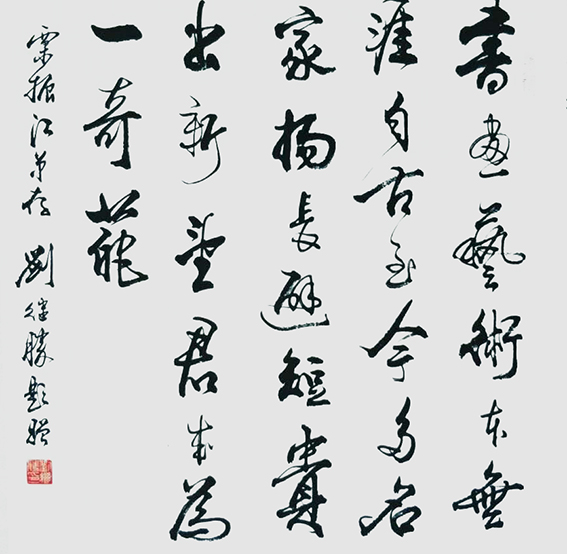 書畫藝術本無
涯自古至今多名
家揚長避短貴
出新望君成為
一奇葩
振江弟存 劉繼勝題贈